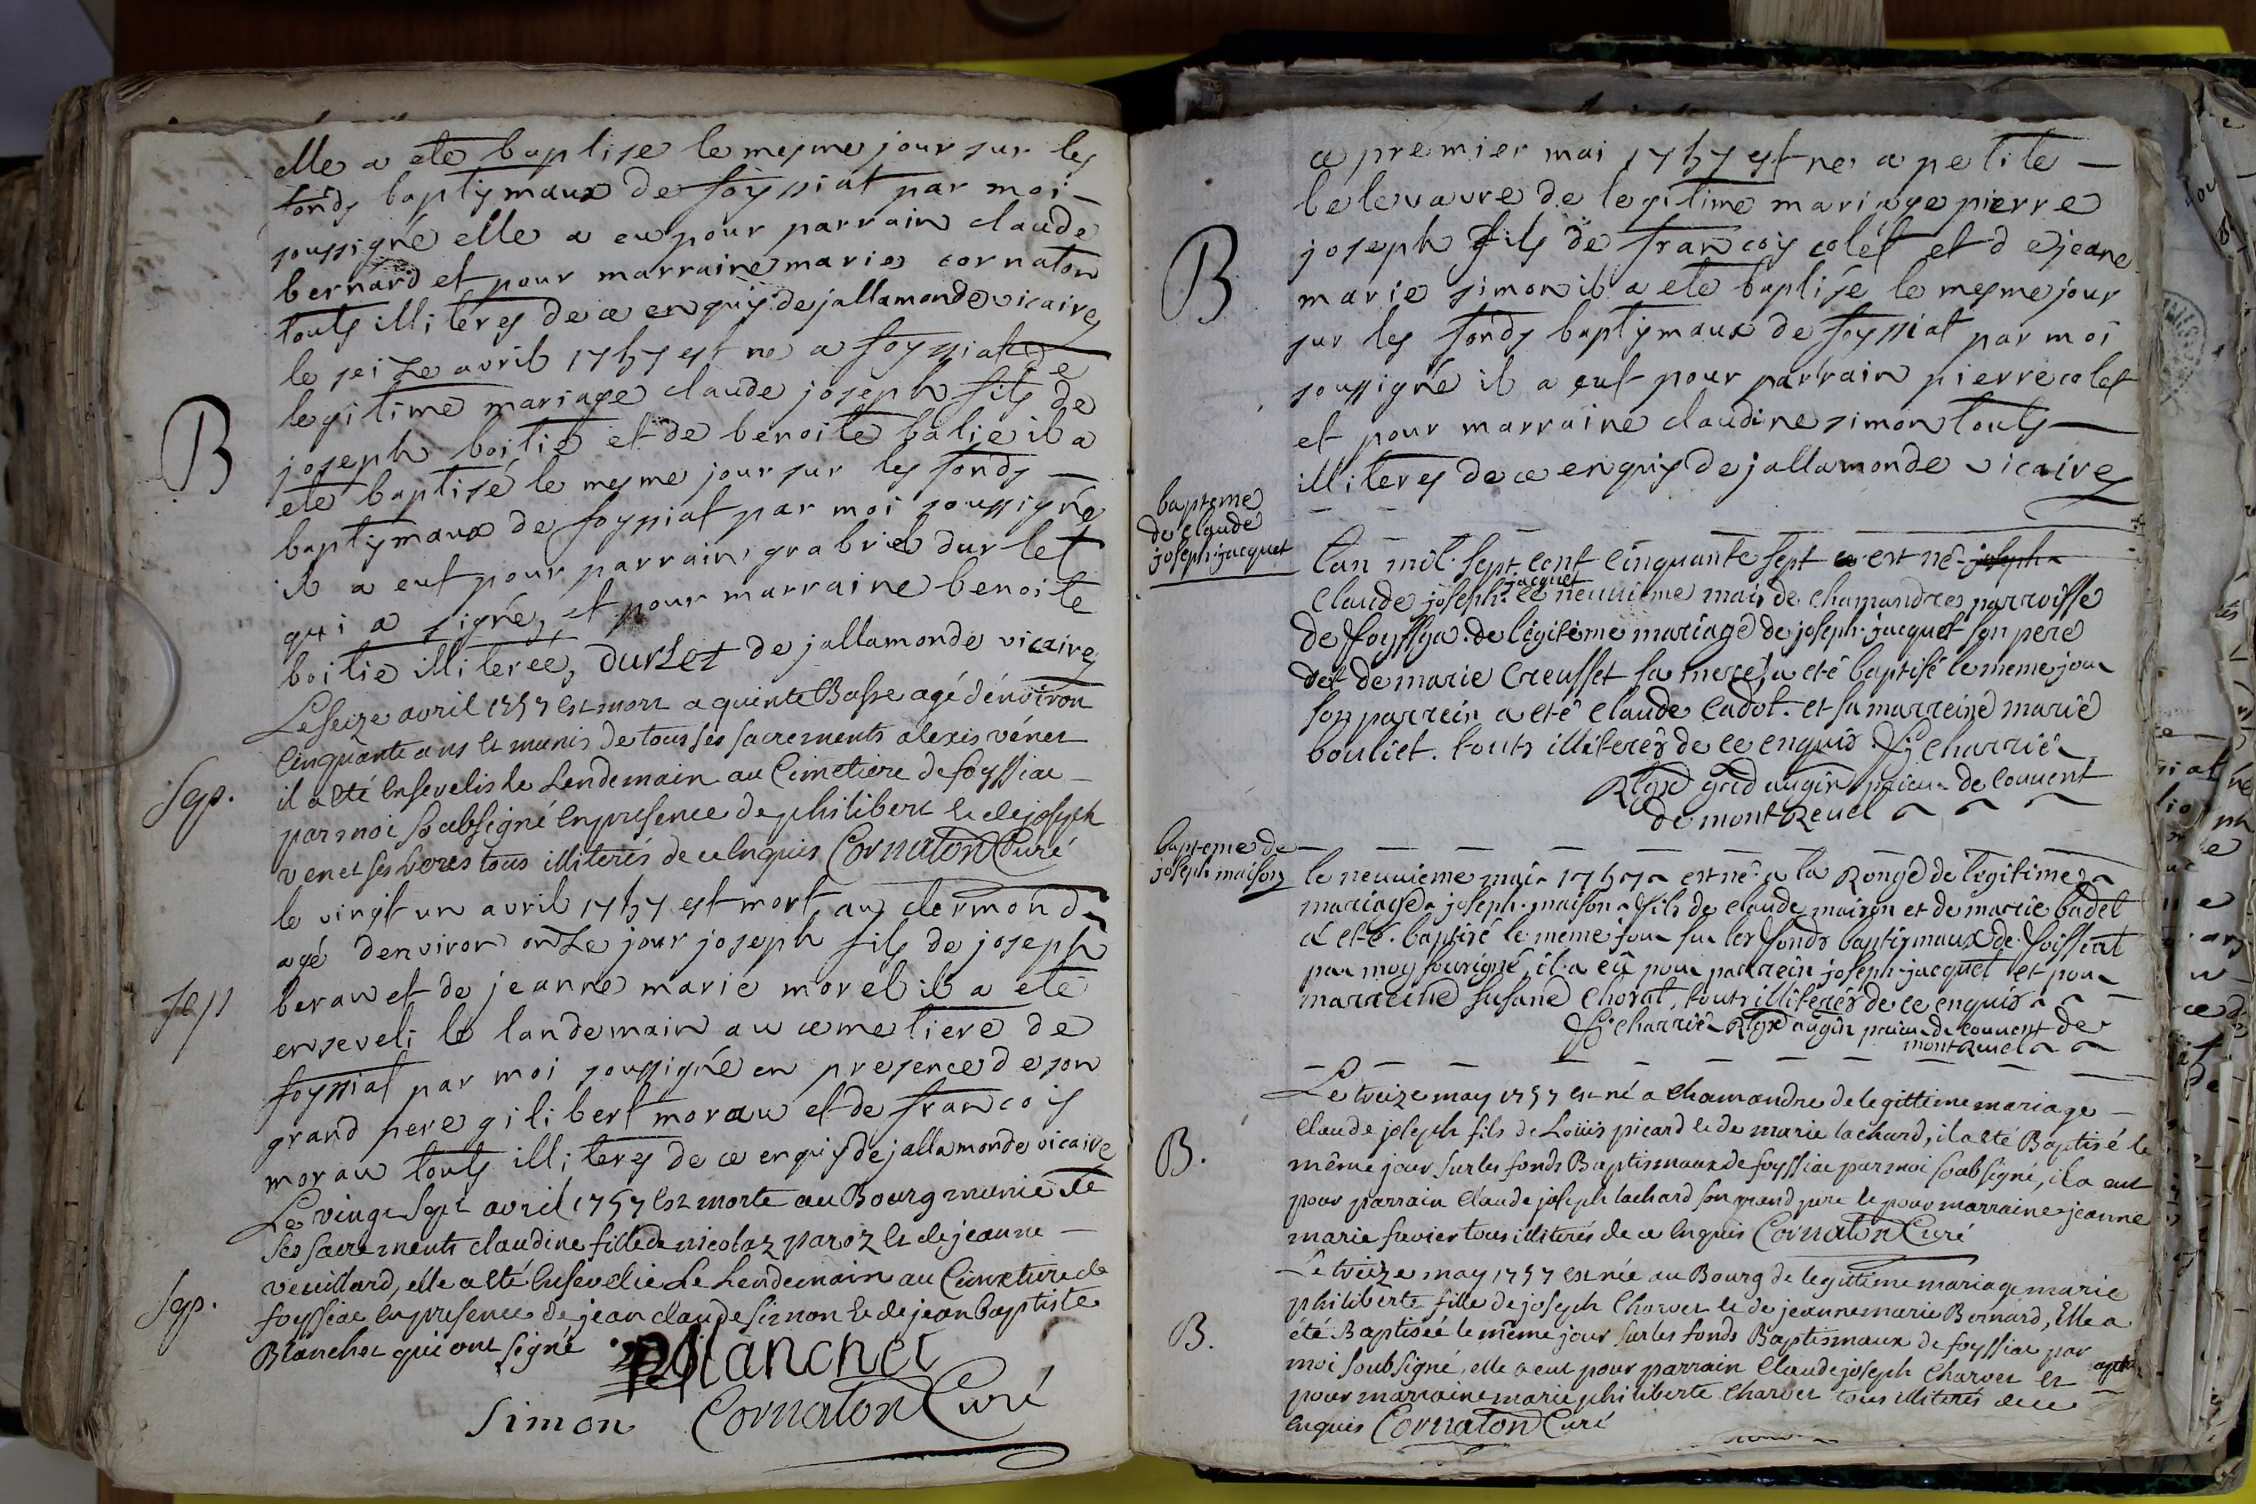 elle a ete baptise le mesme jour sur les
fonds baptismaux de foyssiat par moi
soussigné elle a eu pour parrain claude
bernard et pour marraine marie cornaton
touts illiteres de ce enquis dejallamonde vicaire
B
le seize avril 1757 est ne a foyssiat de
legitime mariage claude joseph fils de
joseph boitie et de benoite balie il a
ete baptisé le mesme jour sur les fonds
baptismaux de foyssiat par moi soussigné
il a eut pour parrain grabriel durlet
qui a signé, et pour marraine benoite
boitie illiterée, durlet de jallamonde vicaire
Sep.
Le seize avril 1757 est mort a quinte Basse agé d'environ
Cinquante ans et munis de tous ses sacrements alexis vénet
il a eté Ensevelis le Lendemain au Cimetiere de foyssiat
par moi soubsigné En presence de philibert et de joseph
venet ses freres tous illiterés de ce Enquis Cornaton Curé
Sep
le vingt un avril 1757 est mort au clermond
agé denviron onze jour joseph fils de joseph
berau et de jeanne marie morél il a ete
enseveli le landemain au cemetiere de
foyssiat par moi soussigné en presence de son
grand pere gilibert morau et de francois
morau touts illiteres de ce enquis dejallamonde vicaire
Sep.
Le vingt Sept avril 1757 Est morte au Bourg munie de
Ses sacrements claudine fille de nicolaz paroz Et de jeanne
veuillard, elle a eté Ensevelie Le Lendemain au Cimetiere de
foyssiat En presence de jean claude simon et de jean baptiste
Blanchet qui ont signé Blanchet
Simon Cornaton Curé
B
ce premier mai 1757 est ne a petite
belevavre de legitime mariage pierre
joseph fils de francois colét et de jeane
marie simon il a ete baptisé le mesme jour
sur les fonds baptismaux de foyssiat par moi
soussigné il a eut pour parrain pierre colet
et pour marraine claudine simon touts
illiteres de ce enquis de jallamonde vicaire
bapteme
de Claude
joseph jacquet
Lan mil sept cent cinquante sept est né joseph
jacquet
Claude joseph le neuvième mai, de chamandres parroisse
de ffoyssya de légitime mariage de joseph jacquet son pere
det de marie Creusset sa mere, a eté baptisé le meme jour
son parrein a eté Claude Cadot et sa marreine marie
bouliet. touts illiterés de ce enquis ff. Charrié
prieur de Couvent
de montReuel
bapteme de
joseph maison
le neuvieme mai 1757 est né a la Ronge de legitime
mariage joseph maison fils de claude maison et de marie badel
a eté baptisé le meme jour sur les fonds baptismaux de foissiat
par moy sousigné, il a eû pour parrein joseph jacquet et pour
marreine susane Chorat, touts illiterés de ce enquis
ff. Charrié augin prieur de couvent de
montReuel
B.
Le treize may 1757 est né a Chamandre de legittime mariage
Claude joseph fils de Louis picard et de marie lachard, il a eté Baptisé le
même jour sur les fonds Baptismaux de foyssiat par moi soubsigné, il a eut
pour parrain Claude joseph lachard son grand pere et pour marraine jeanne
marie fuvier tous illiterés de ce Enquis Cornaton Curé
B.
Le treize may 1757 est née au Bourg de legittime mariage marie
philiberte fille de joseph Charvet et de jeanne marie Bernard, Elle a
été Baptisée le même jour sur les fonds Baptismaux de foyssiat par
moi soubsigné, elle a eut pour parrain Claude joseph Charvet Et
pour marraine marie philiberte Charvet tous illiterés de ce
Enquis Cornaton Curé